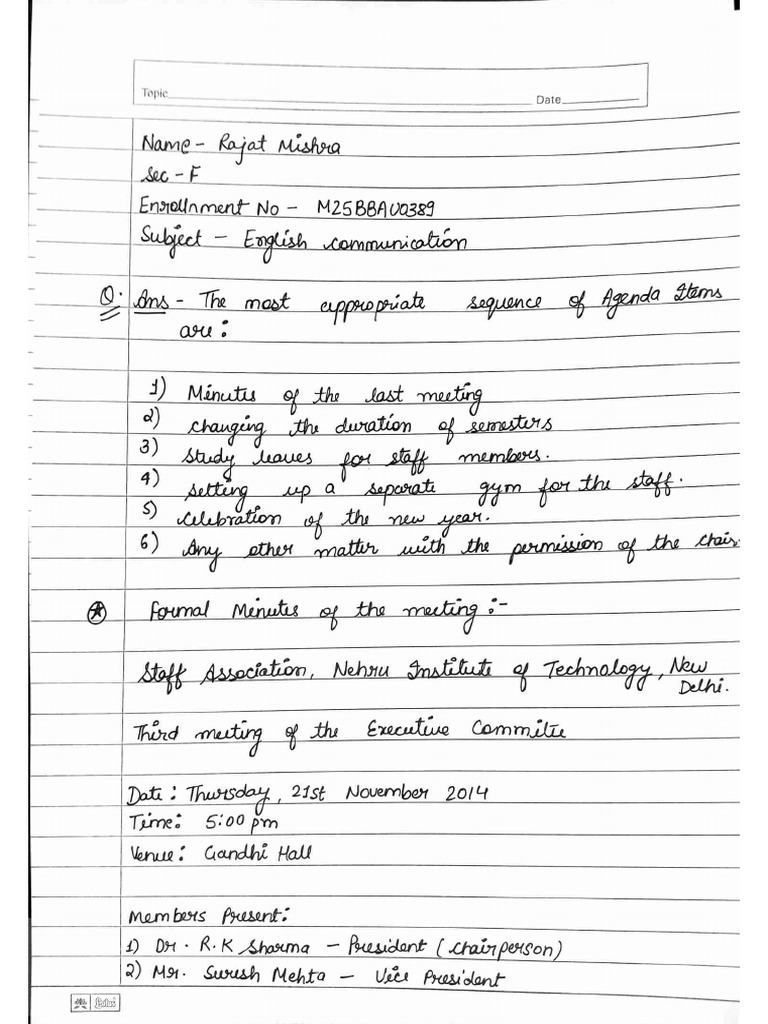 Topic Date
Name - Rajat Mishra
Sec - F
Enrollnment No - M25BBAU0389
Subject - English communication
Q. Ans - The most appropriate sequence of Agenda Items
are:
1) Minutes of the last meeting
2) changing the duration of semesters
3) Study leaves for staff members.
4) setting up a separate gym for the staff.
5) celebration of the new year.
6) Any other matter with the permission of the chair.
Formal Minutes of the meeting :-
Staff Association, Nehru Institute of Technology, New
Delhi.
Third meeting of the Executive Committie
Date: Thursday, 21st November 2014
Time: 5:00 pm
Venue: Gandhi Hall
Members Present:
1) Dr. R.K Sharma - President (chairperson)
2) Mr. Suresh Mehta - Vice President